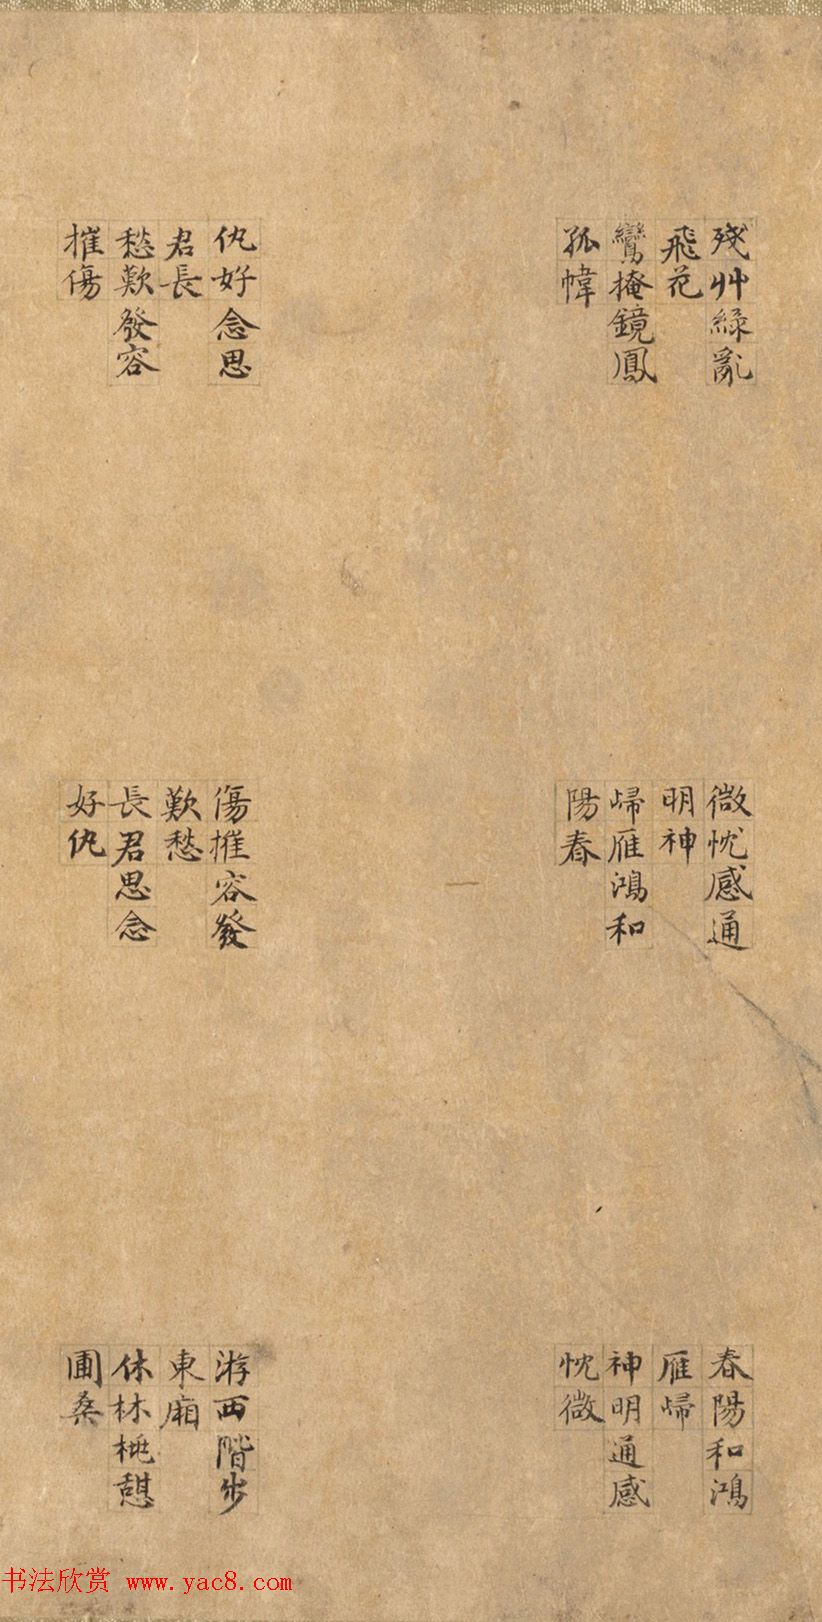 殘艸綠亂
飛花
鸞掩鏡鳳
孤幃
微忱感通
明神
歸雁鴻和
陽春
春陽和鴻
雁歸
神明通感
忱微
仇好念思
君長
愁歎發容
摧傷
傷摧容發
歎愁
長君思念
好仇
游西階步
東廂
休林桃憇
圃桑
书法欣赏 www.yac8.com